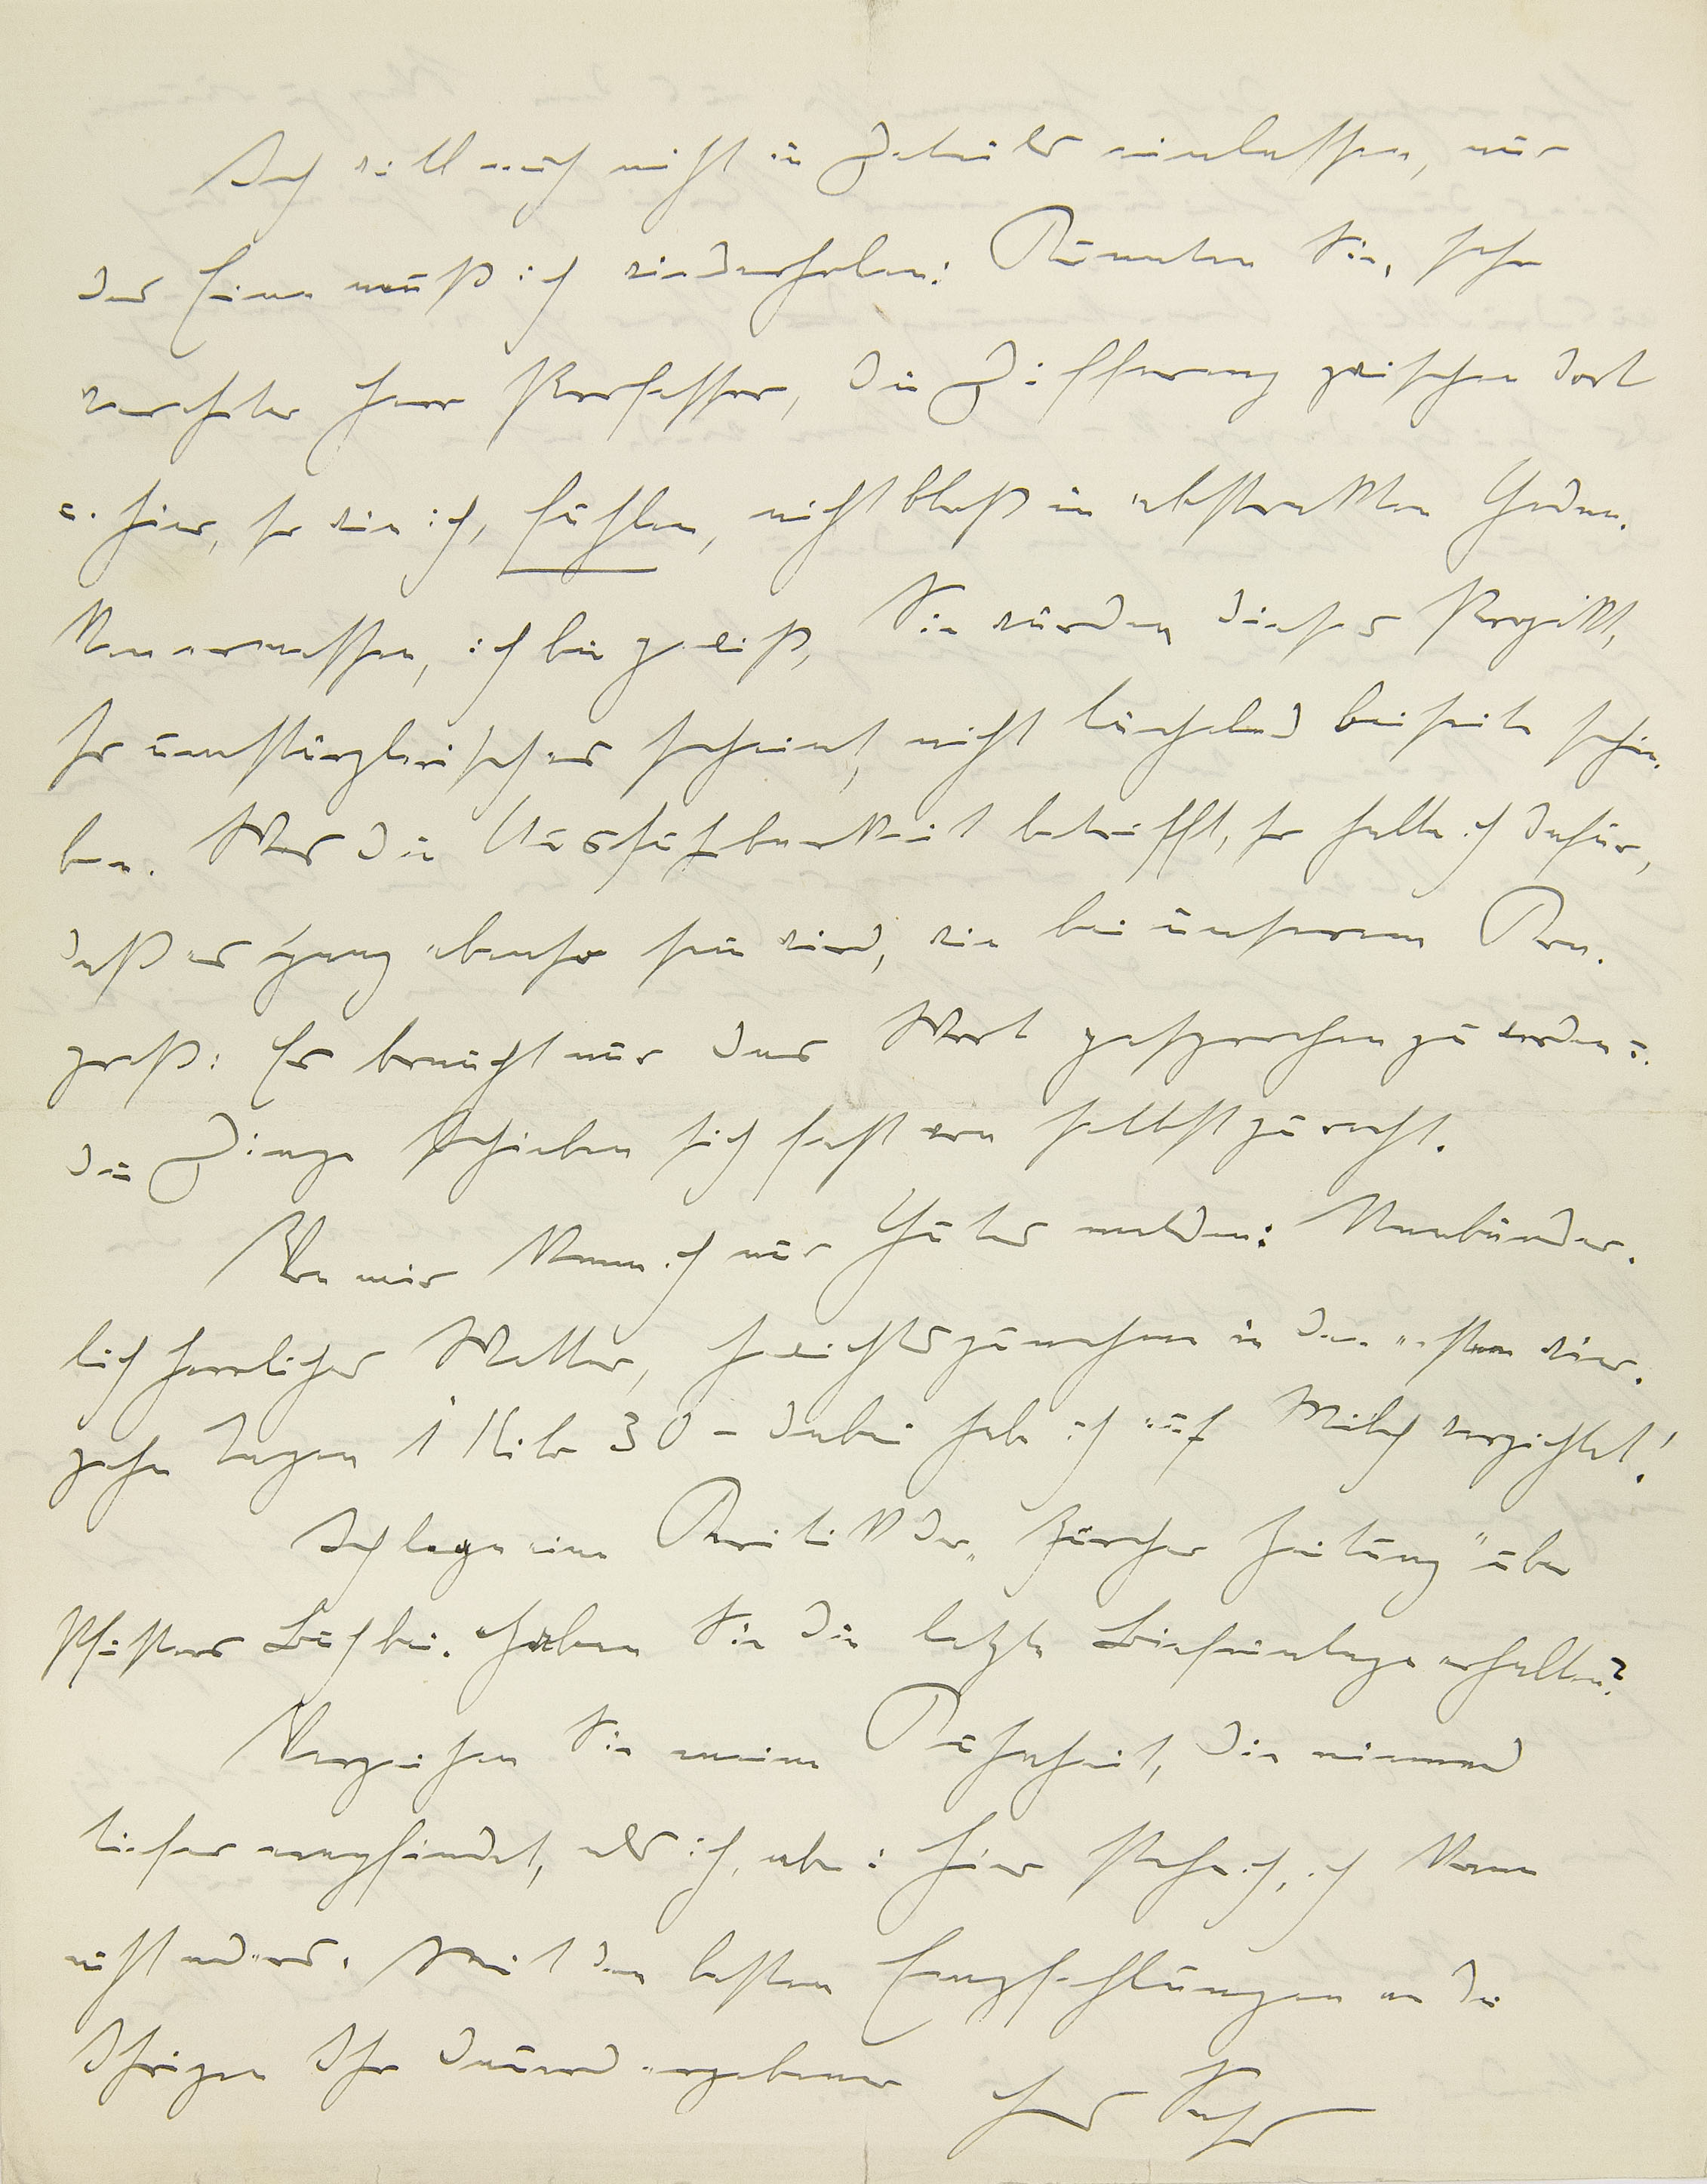 Ich will mich nicht in Details einlassen, nur
das Eine muß ich wiederholen: Könnten Sie, sehr
verehrter Herr Professor, die Differenz zwischen dort
u. hier, so wie ich, fühlen, nicht bloß in abstrakten Gedan-
ken ermessen, ich bin gewiß, Sie würden dieses Projekt,
so umstürzlerisch es scheint, nicht lächelnd beiseite schie-
ben. Was die Ausführbarkeit betrifft, so halte ich dafür,
daß es ganz ebenso sein wird, wie bei unserem Kon-
greß: Es braucht nur das Wort gesprochen zu werden u.
die Dinge schieben sich fast von selbst zurecht.
Von mir kann ich nur Gutes melden: Unabänder-
lich herrliches Wetter, Gewichtszunahme in den ersten vier-
zehn Tagen 1 Kilo 30 – dabei habe ich auf Milch verzichtet!
Ich lege eine Kritik der „Zürcher Zeitung" über
Pfisters Buch bei. Haben Sie die letzte Briefeinlage erhalten?
Verzeihen Sie meine Kühnheit, die niemand
tiefer empfindet, als ich, aber: hier stehe ich, ich kann
nicht anders. Mit den besten Empfehlungen an die
Ihrigen Ihr dauernd ergebener Hanns Sachs